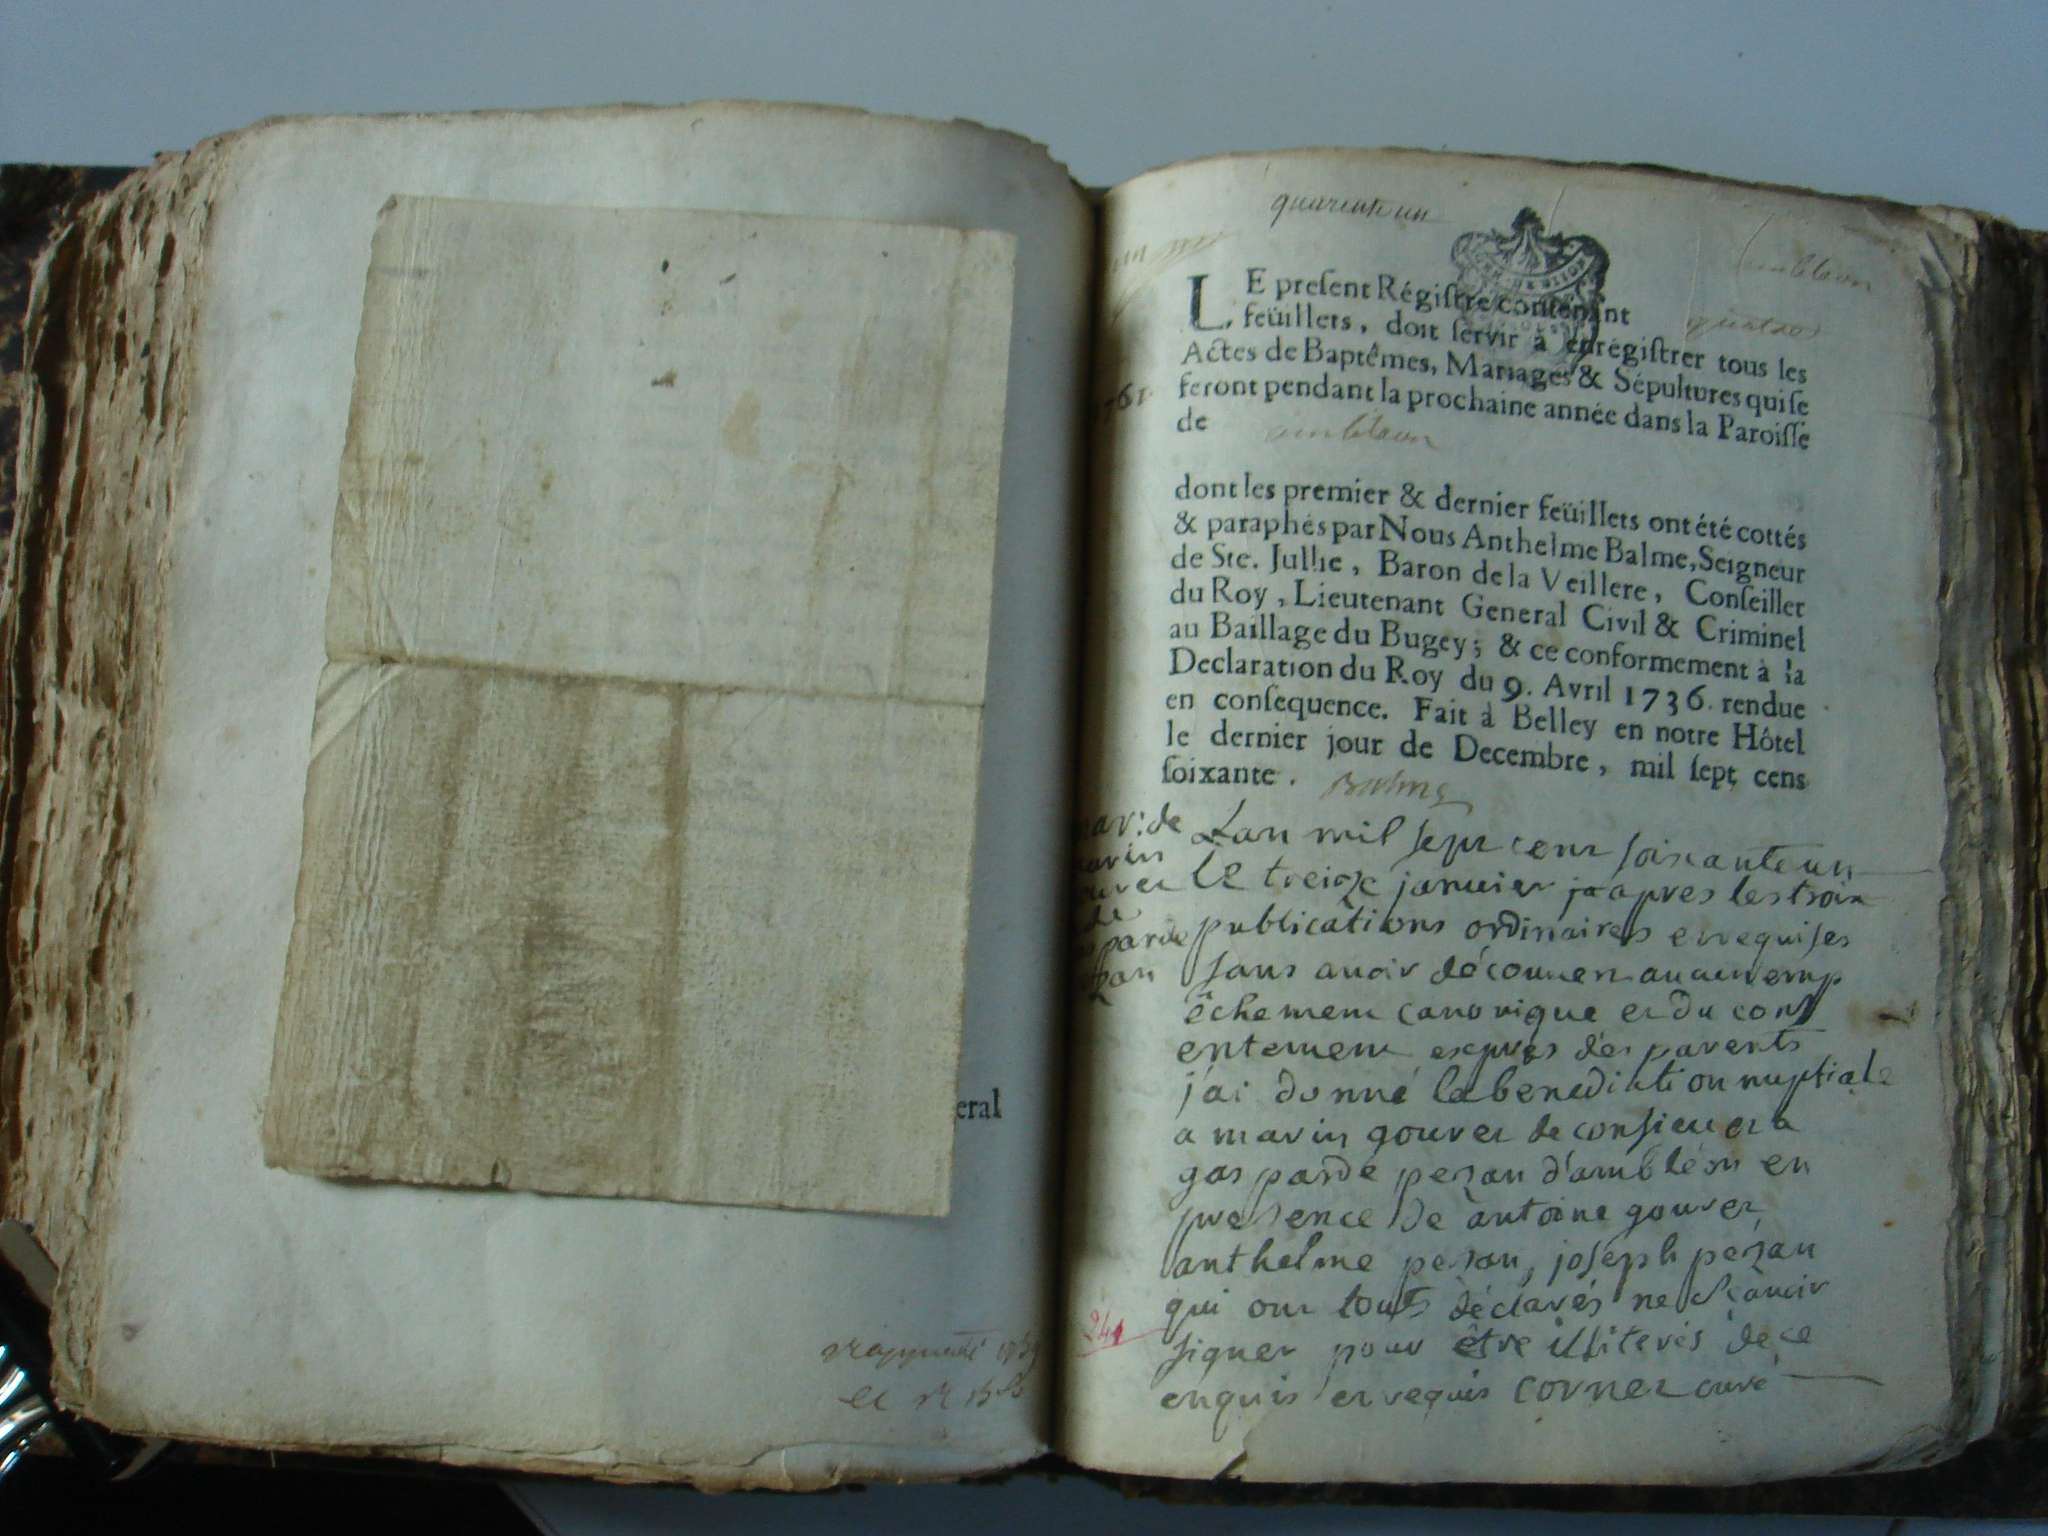 eral
quarente un
LE preſent Régiſtre contenant quatre
feüillets, doit ſervir à enrégiſtrer tous les
Actes de Baptêmes, Mariages & Sépultures qui ſe
feront pendant la prochaine année dans la Paroiſſe
de ambleon
1761
dont les premier & dernier feüillets ont été cottés
& paraphés par Nous Anthelme Balme, Seigneur
de Ste. Jullie, Baron de la Veillere, Conſeiller
du Roy, Lieutenant General Civil & Criminel
au Baillage du Bugey; & ce conformement à la
Declaration du Roy du 9. Avril 1736. rendue
en conſequence. Fait à Belley en notre Hôtel
le dernier jour de Decembre, mil ſept cens
ſoixante. Balme
mar: de
marin
gouvet
de
gasparde
pezan
Lan mil sept cent soixante un
le treize janvier ja apres les trois
publications ordinaires et requises
sans avoir découvert aucun emp
êchement canonique et du cons
entement exprès des parents
j'ai donné la benediction nuptiale
a marin gouvet de consieu et a
gasparde pezan d'ambléon en
presence de antoine gouvet
anthelme pezan, joseph pezan
qui ont touts déclarés ne sçavoir
signer pour être illiterés de ce
enquis et requis cornet curé
241